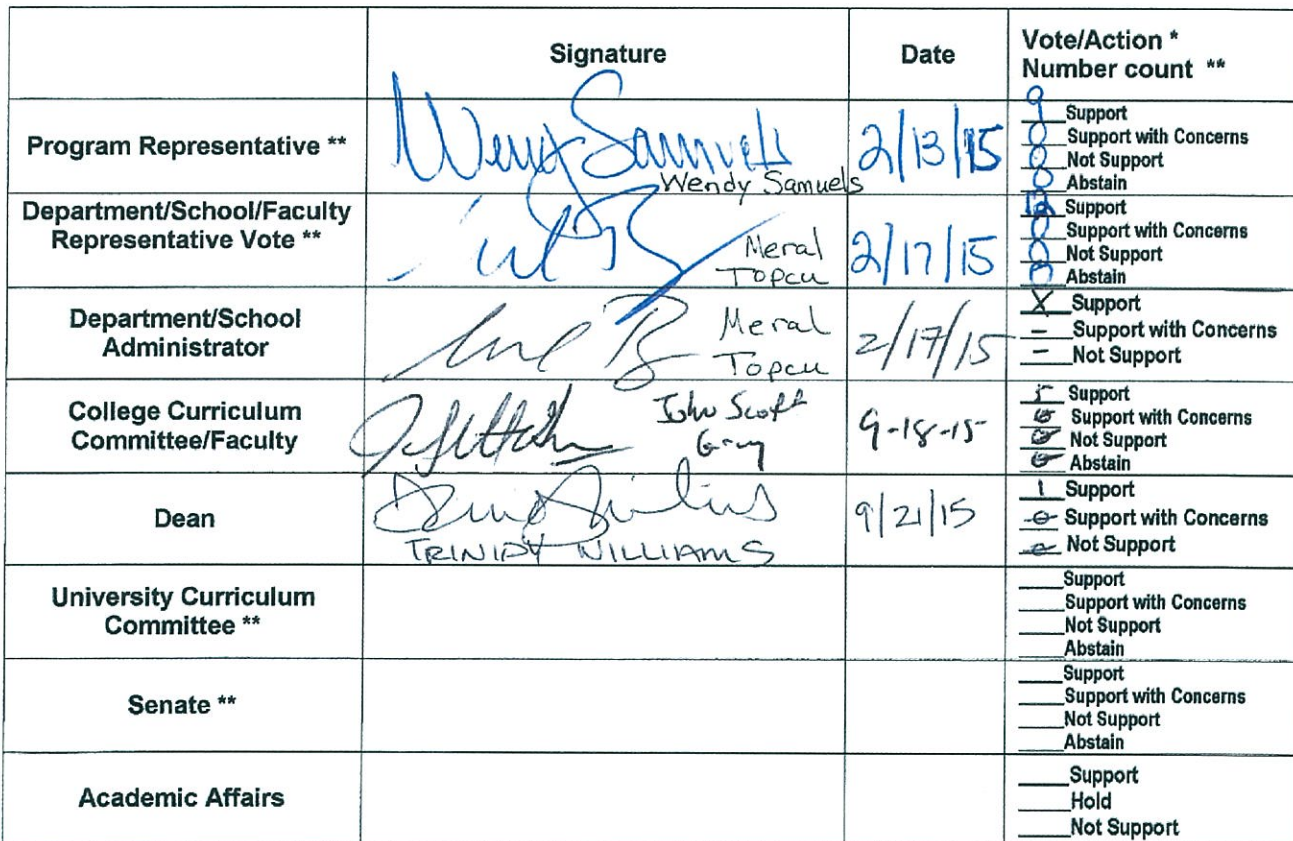 Signature Date Vote/Action *
Number count **
Program Representative ** Wendy Samuels 2/13/15 9 Support
0 Support with Concerns
0 Not Support
0 Abstain
Wendy Samuels
Department/School/Faculty
Representative Vote ** Meral
Topcu 2/17/15 12 Support
0 Support with Concerns
0 Not Support
0 Abstain
Department/School
Administrator Meral
Topcu 2/17/15 X Support
- Support with Concerns
- Not Support
College Curriculum
Committee/Faculty John Scott
Gray 9-18-15 5 Support
0 Support with Concerns
0 Not Support
0 Abstain
Dean 9/21/15 1 Support
0 Support with Concerns
0 Not Support
TRINIDY WILLIAMS
University Curriculum
Committee ** Support
Support with Concerns
Not Support
Abstain
Senate ** Support
Support with Concerns
Not Support
Abstain
Academic Affairs Support
Hold
Not Support